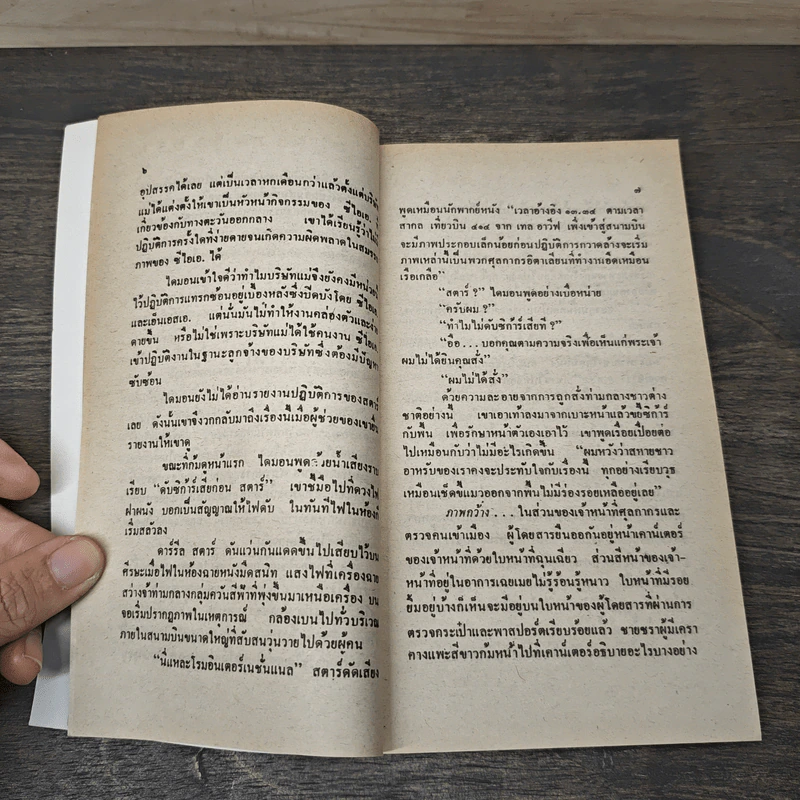 ๖
อุปสรรคได้เลย แต่เป็นเวลาหกเดือนกว่าแล้วตั้งแต่บริษัท
แม่ได้แต่งตั้งให้เขาเป็นหัวหน้ากิจกรรมของ ซีไอเอ. ที่
เกี่ยวข้องกับทางตะวันออกกลาง เขาได้เรียนรู้ว่าไม่มี
ปฏิบัติการครั้งใดที่ง่ายดายจนเกิดความผิดพลาดในสมรรถ
ภาพของ ซีไอเอ. ได้
ไดมอนเข้าใจดีว่าทำไมบริษัทแม่จึงยังคงมีหน่วย
ไว้ปฏิบัติการแทรกซอนอยู่เบื้องหลังซึ่งปิดบังโดย ซีไอเอ.
และเอ็นเอสเอ. แต่นั่นมันไม่ทำให้งานคล่องตัวและง่าย
ดายขึ้น หรือไม่ใช่เพราะบริษัทแม่ได้ใช้คนงาน ซีไอเอ.
เข้าปฏิบัติงานในฐานะลูกจ้างของบริษัทซึ่งต้องมีปัญหา
ซับซ้อน
ไดมอนยังไม่ได้อ่านรายงานปฏิบัติการของสตาร์
เลย ดังนั้นเขาจึงวกกลับมาถึงเรื่องนี้เมื่อผู้ช่วยของเขายื่น
รายงานให้เขาดู
ขณะที่ก้มดูหน้าแรก ไดมอนพูดด้วยน้ำเสียงราบ
เรียบ “ดับซิการ์เสียก่อน สตาร์” เขาชี้มือไปที่ดวงไฟ
ฝาผนัง บอกเป็นสัญญาณให้ไฟดับ ในทันทีไฟในห้องก็
เริ่มสลัวลง
ดาร์รีล สตาร์ ดันแว่นกันแดดขึ้นไปเสียบไว้บน
ศีรษะเมื่อไฟในห้องฉายหนังมืดสนิท แสงไฟที่เครื่องฉาย
สว่างจ้าท่ามกลางกลุ่มควันสีฟ้าที่พุ่งขึ้นมาเหนือเครื่อง บน
จอเริ่มปรากฏภาพในเหตุการณ์ กล้องเบนไปทั่วบริเวณ
ภายในสนามบินขนาดใหญ่ที่สับสนวุ่นวายไปด้วยผู้คน
“นี่แหละโรมอินเตอร์เนชั่นแนล” สตาร์ดัดเสียง
๗
พูดเหมือนนักพากย์หนัง “เวลาอ้างอิง ๑๓.๓๔ ตามเวลา
สากล เที่ยวบิน ๔๑๔ จาก เทล อาวีฟ เพิ่งเข้าสู่สนามบิน
จะมีภาพประกอบเล็กน้อยก่อนปฏิบัติการกวาดล้างจะเริ่ม
ภาพเหล่านี้เป็นพวกศุลกากรอิตาเลียนที่ทำงานอืดเหมือน
เรือเกลือ”
“สตาร์ ?” ไดมอนพูดอย่างเบื่อหน่าย
“ครับผม ?”
“ทำไมไม่ดับซิการ์เสียที ?”
“อ้อ...บอกคุณตามความจริงเพื่อเห็นแก่พระเจ้า
ผมไม่ได้ยินคุณสั่ง”
“ผมไม่ได้สั่ง”
ด้วยความละอายจากการถูกสั่งท่ามกลางชาวต่าง
ชาติอย่างนี้ เขาเอาเท้าลงมาจากเบาะหน้าแล้วขยี้ซิการ์
กับพื้น เพื่อรักษาหน้าตัวเองเอาไว้ เขาพูดเรื่อยเปื่อยต่อ
ไปเหมือนกับว่าไม่มีอะไรเกิดขึ้น “ผมหวังว่าสหายชาว
อาหรับของเราคงจะประทับใจกับเรื่องนี้ ทุกอย่างเรียบวุธ
เหมือนเช็ดขี้แมวออกจากพื้นไม่มีร่องรอยเหลืออยู่เลย”
ภาพกว้าง... ในส่วนของเจ้าหน้าที่ศุลกากรและ
ตรวจคนเข้าเมือง ผู้โดยสารยืนออกันอยู่หน้าเคาน์เตอร์
ของเจ้าหน้าที่ด้วยใบหน้าที่ฉุนเฉียว ส่วนสีหน้าของเจ้า-
หน้าที่อยู่ในอาการเฉยเมยไม่รู้ร้อนรู้หนาว ใบหน้าที่มีรอย
ยิ้มอยู่บ้างก็เห็นจะมีอยู่บนใบหน้าของผู้โดยสารที่ผ่านการ
ตรวจกระเป๋าและพาสปอร์ตเรียบร้อยแล้ว ชายชราผู้มีเครา
คางแพะสีขาวก้มหน้าไปที่เคาน์เตอร์อธิบายอะไรบางอย่าง